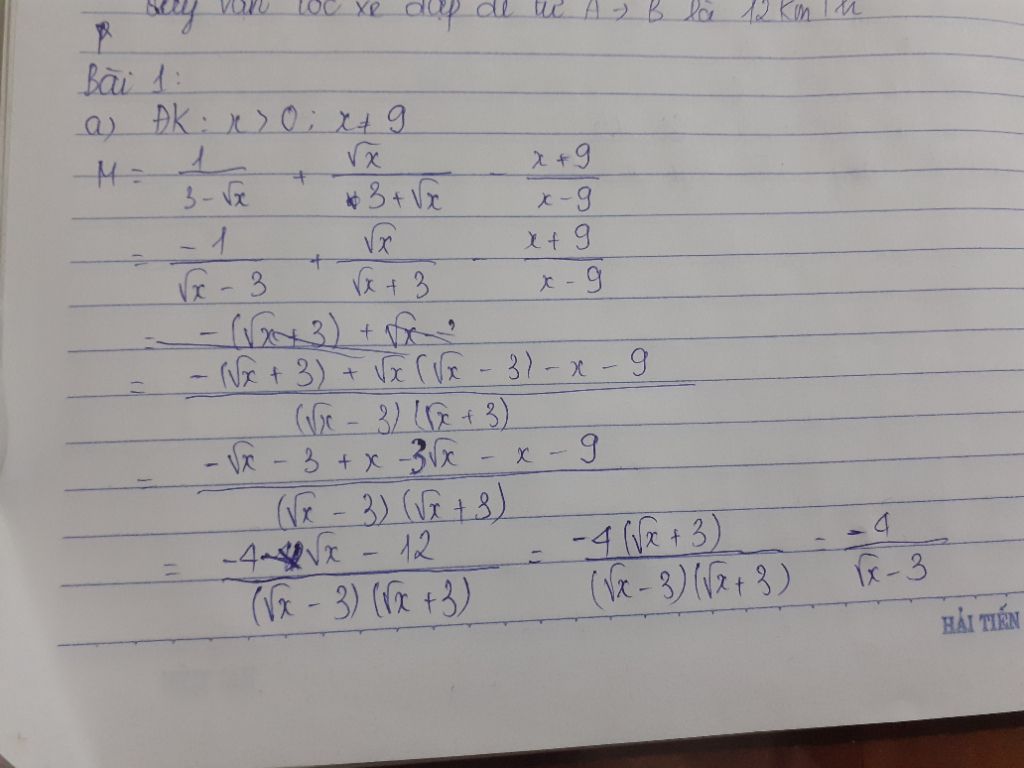 vận tốc xe đạp đi từ A → B là 12 km/h
Bài 1:
a) ĐK: x > 0; x ≠ 9
M = 1/(3 - √x) + √x/(3 + √x) - (x + 9)/(x - 9)
= -1/(√x - 3) + √x/(√x + 3) - (x + 9)/(x - 9)
= -(√x + 3) + √x -
= (-(√x + 3) + √x(√x - 3) - x - 9)/((√x - 3)(√x + 3))
= (-√x - 3 + x - 3√x - x - 9)/((√x - 3)(√x + 3))
= (-4√x - 12)/((√x - 3)(√x + 3)) = -4(√x + 3)/((√x - 3)(√x + 3)) = -4/(√x - 3)
HẢI TIẾN